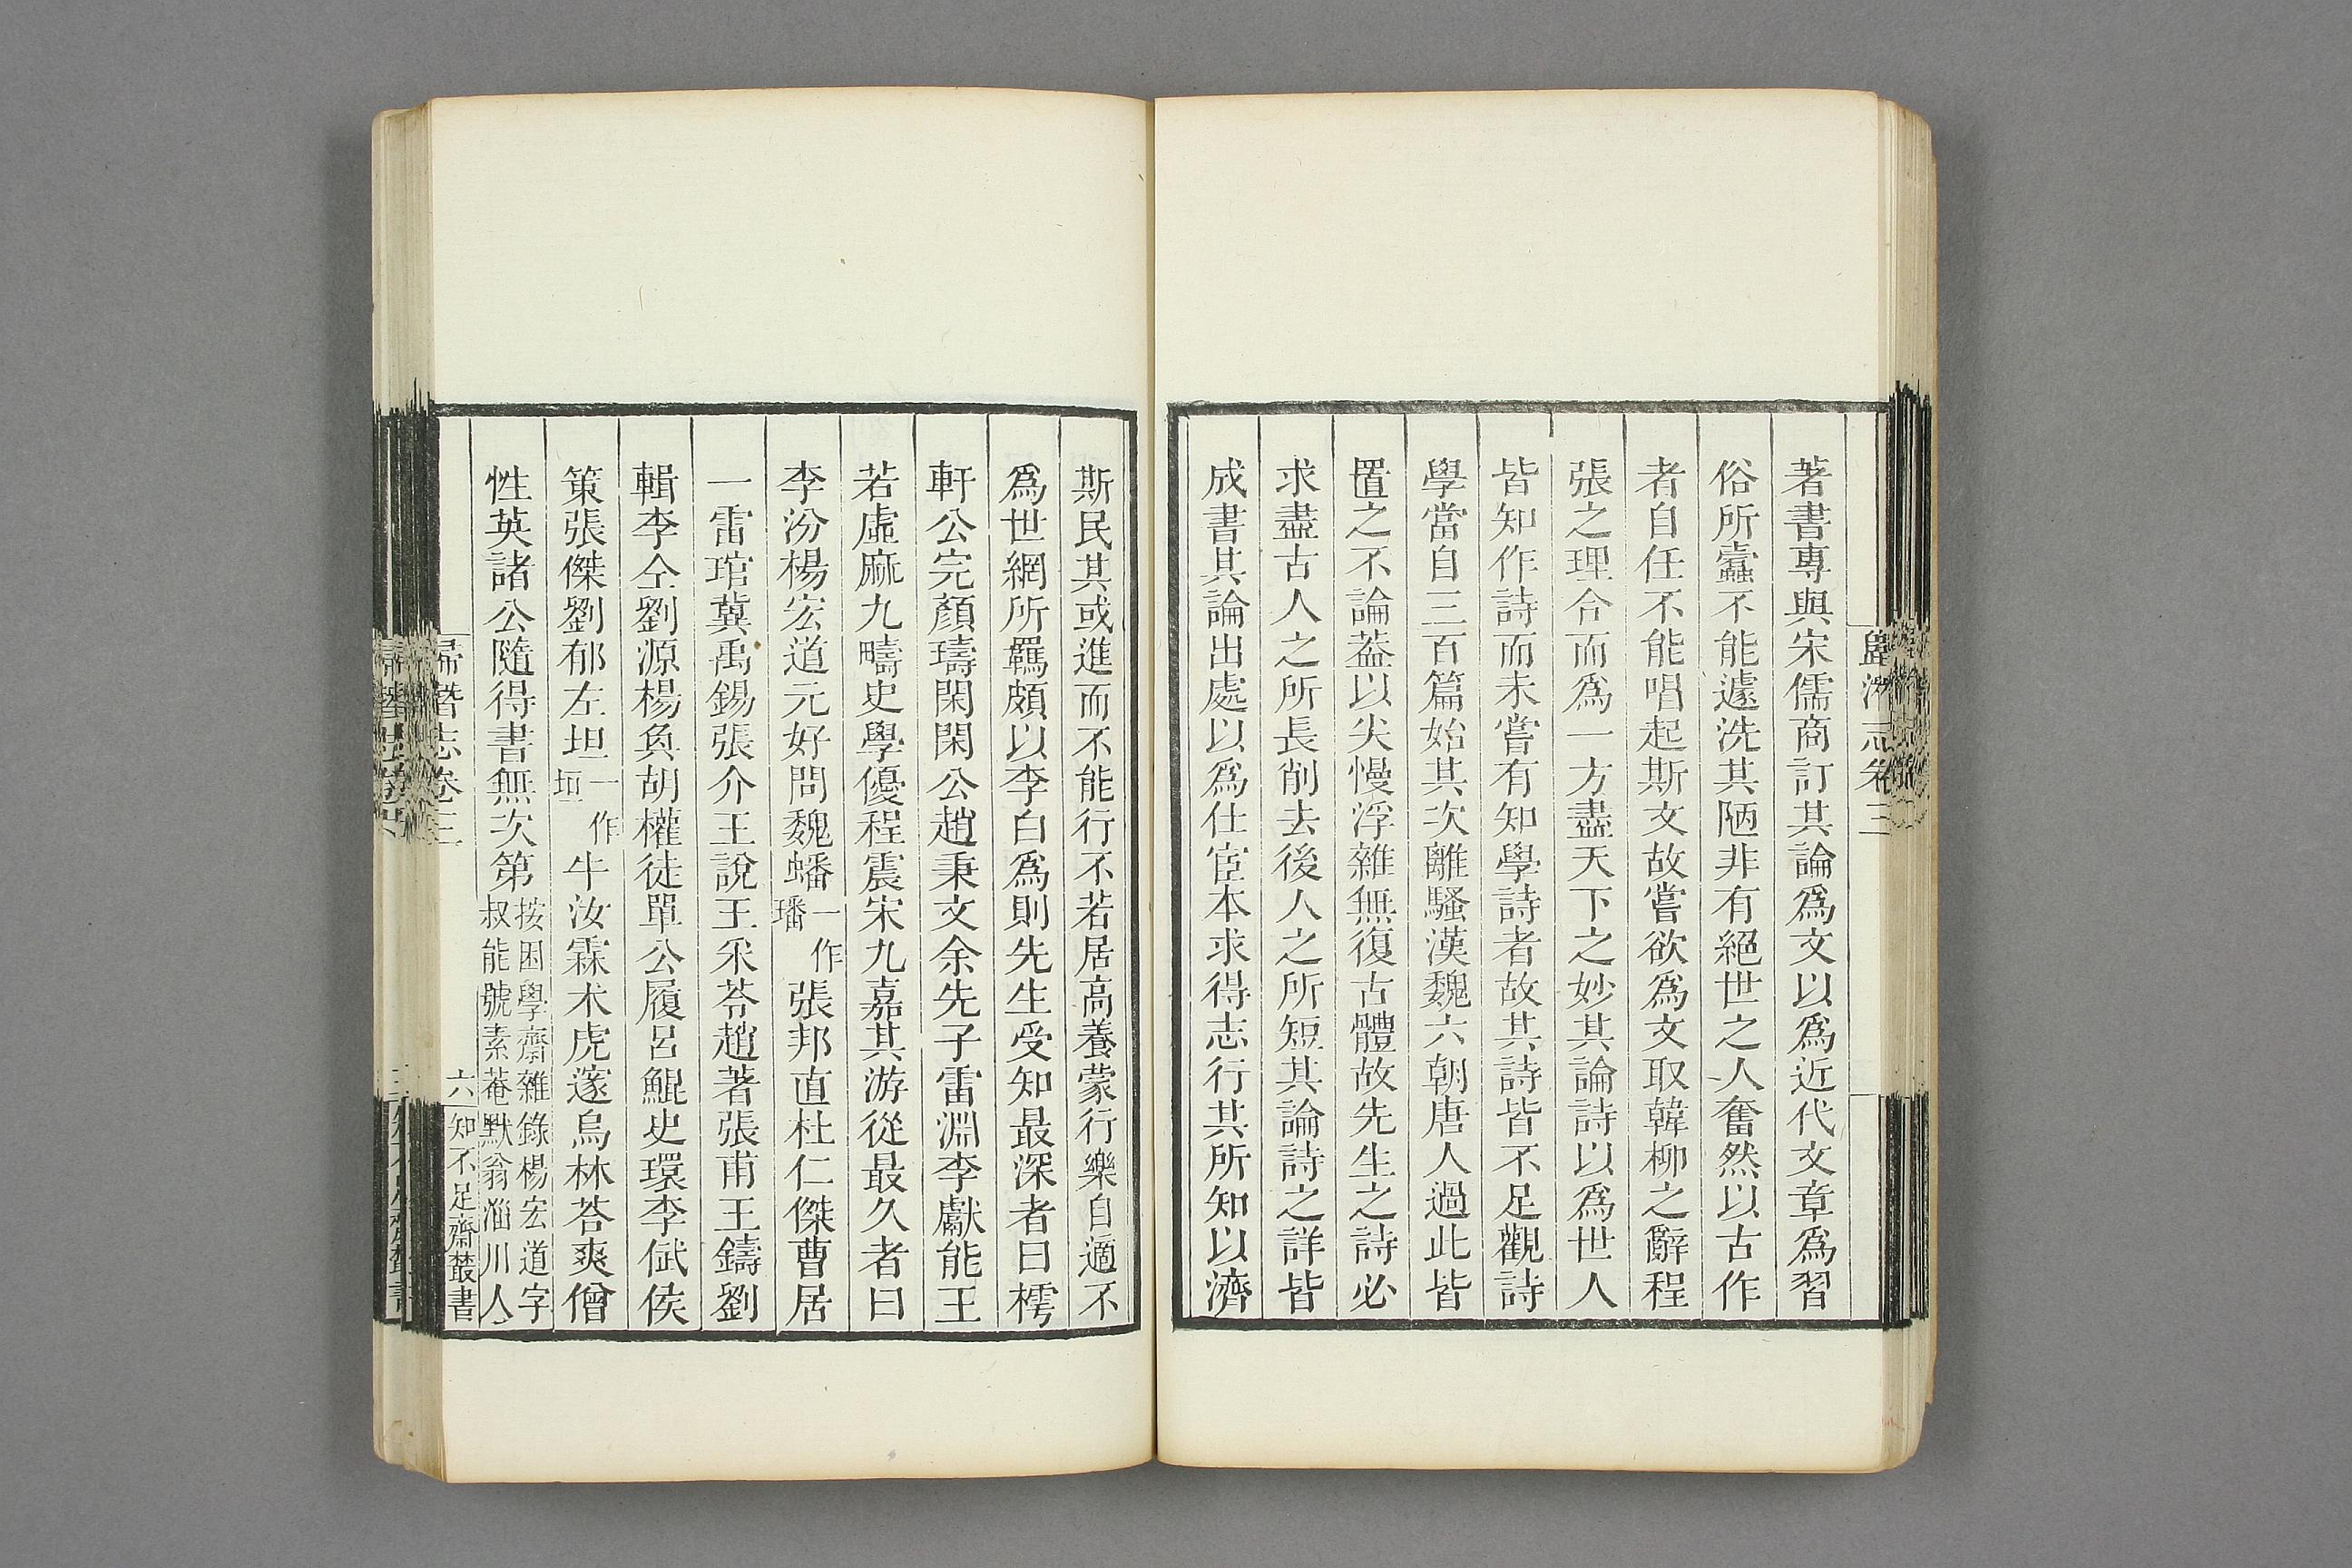 著書專與宋儒商訂其論爲文以爲近代文章爲習
俗所蠹不能遽洗其陋非有絕世之人奮然以古作
者自任不能唱起斯文故嘗欲爲文取韓柳之辭程
張之理合而爲一方盡天下之妙其論詩以爲世人
皆知作詩而未嘗有知學詩者故其詩皆不足觀詩
學當自三百篇始其次離騷漢魏六朝唐人過此皆
置之不論葢以尖慢浮雜無復古體故先生之詩必
求盡古人之所長削去後人之所短其論詩之詳皆
成書其論出處以爲仕宦本求得志行其所知以濟
斯民其或進而不能行不若居高養蒙行樂自適不
爲世網所羈頗以李白爲則先生受知最深者曰樗
軒公完顏璹閑閑公趙秉文余先子雷淵李獻能王
若虛麻九疇史學優程震宋九嘉其游從最久者曰
李汾楊宏道元好問魏蟠一作璠張邦直杜仁傑曹居
一雷琯冀禹錫張介王說王采苓趙著張甫王鑄劉
輯李仝劉源楊奐胡權徒單公履呂鯤史環李侙侯
策張傑劉郁左坦一作垣牛汝霖术虎邃烏林荅爽僧
性英諸公隨得書無次第按困學齋雜錄楊宏道字叔能號素菴默翁淄川人
歸潛志卷三
六
知不足齋叢書